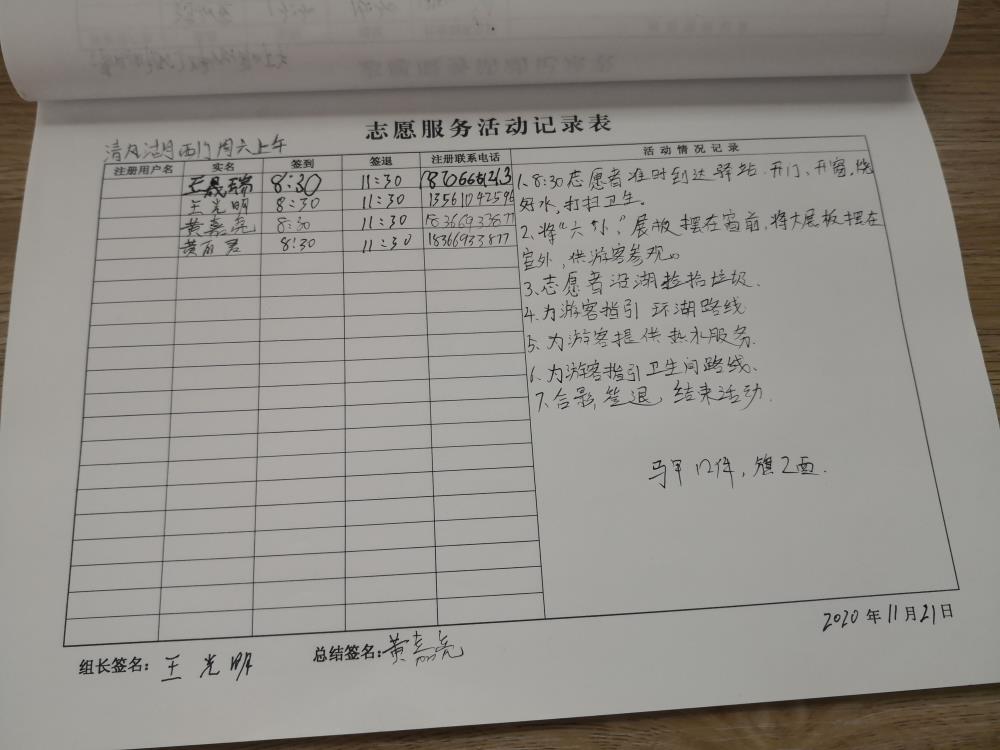 志愿服务活动记录表
清风湖西门周六上午
注册用户名 实名 签到 签退 注册联系电话 活动情况记录
王晟瑞 8:30 11:30
王光明 8:30 11:30 13561042596
黄嘉亮 8:30 11:30 18366933877
黄丽君 8:30 11:30 18366933877
1、8:30志愿者准时到达驿站.开门、开窗,烧
好水,打扫卫生。
2、将“六小”展板摆在窗前,将大展板摆在
室外,供游客参观。
3、志愿者沿湖捡拾垃圾.
4、为游客指引环湖路线
5、为游客提供热水服务.
6、为游客指引卫生间路线、
7、合影,签退,结束活动.
马甲12件,旗2面.
2020年11月21日
组长签名:王光明
总结签名:黄嘉亮